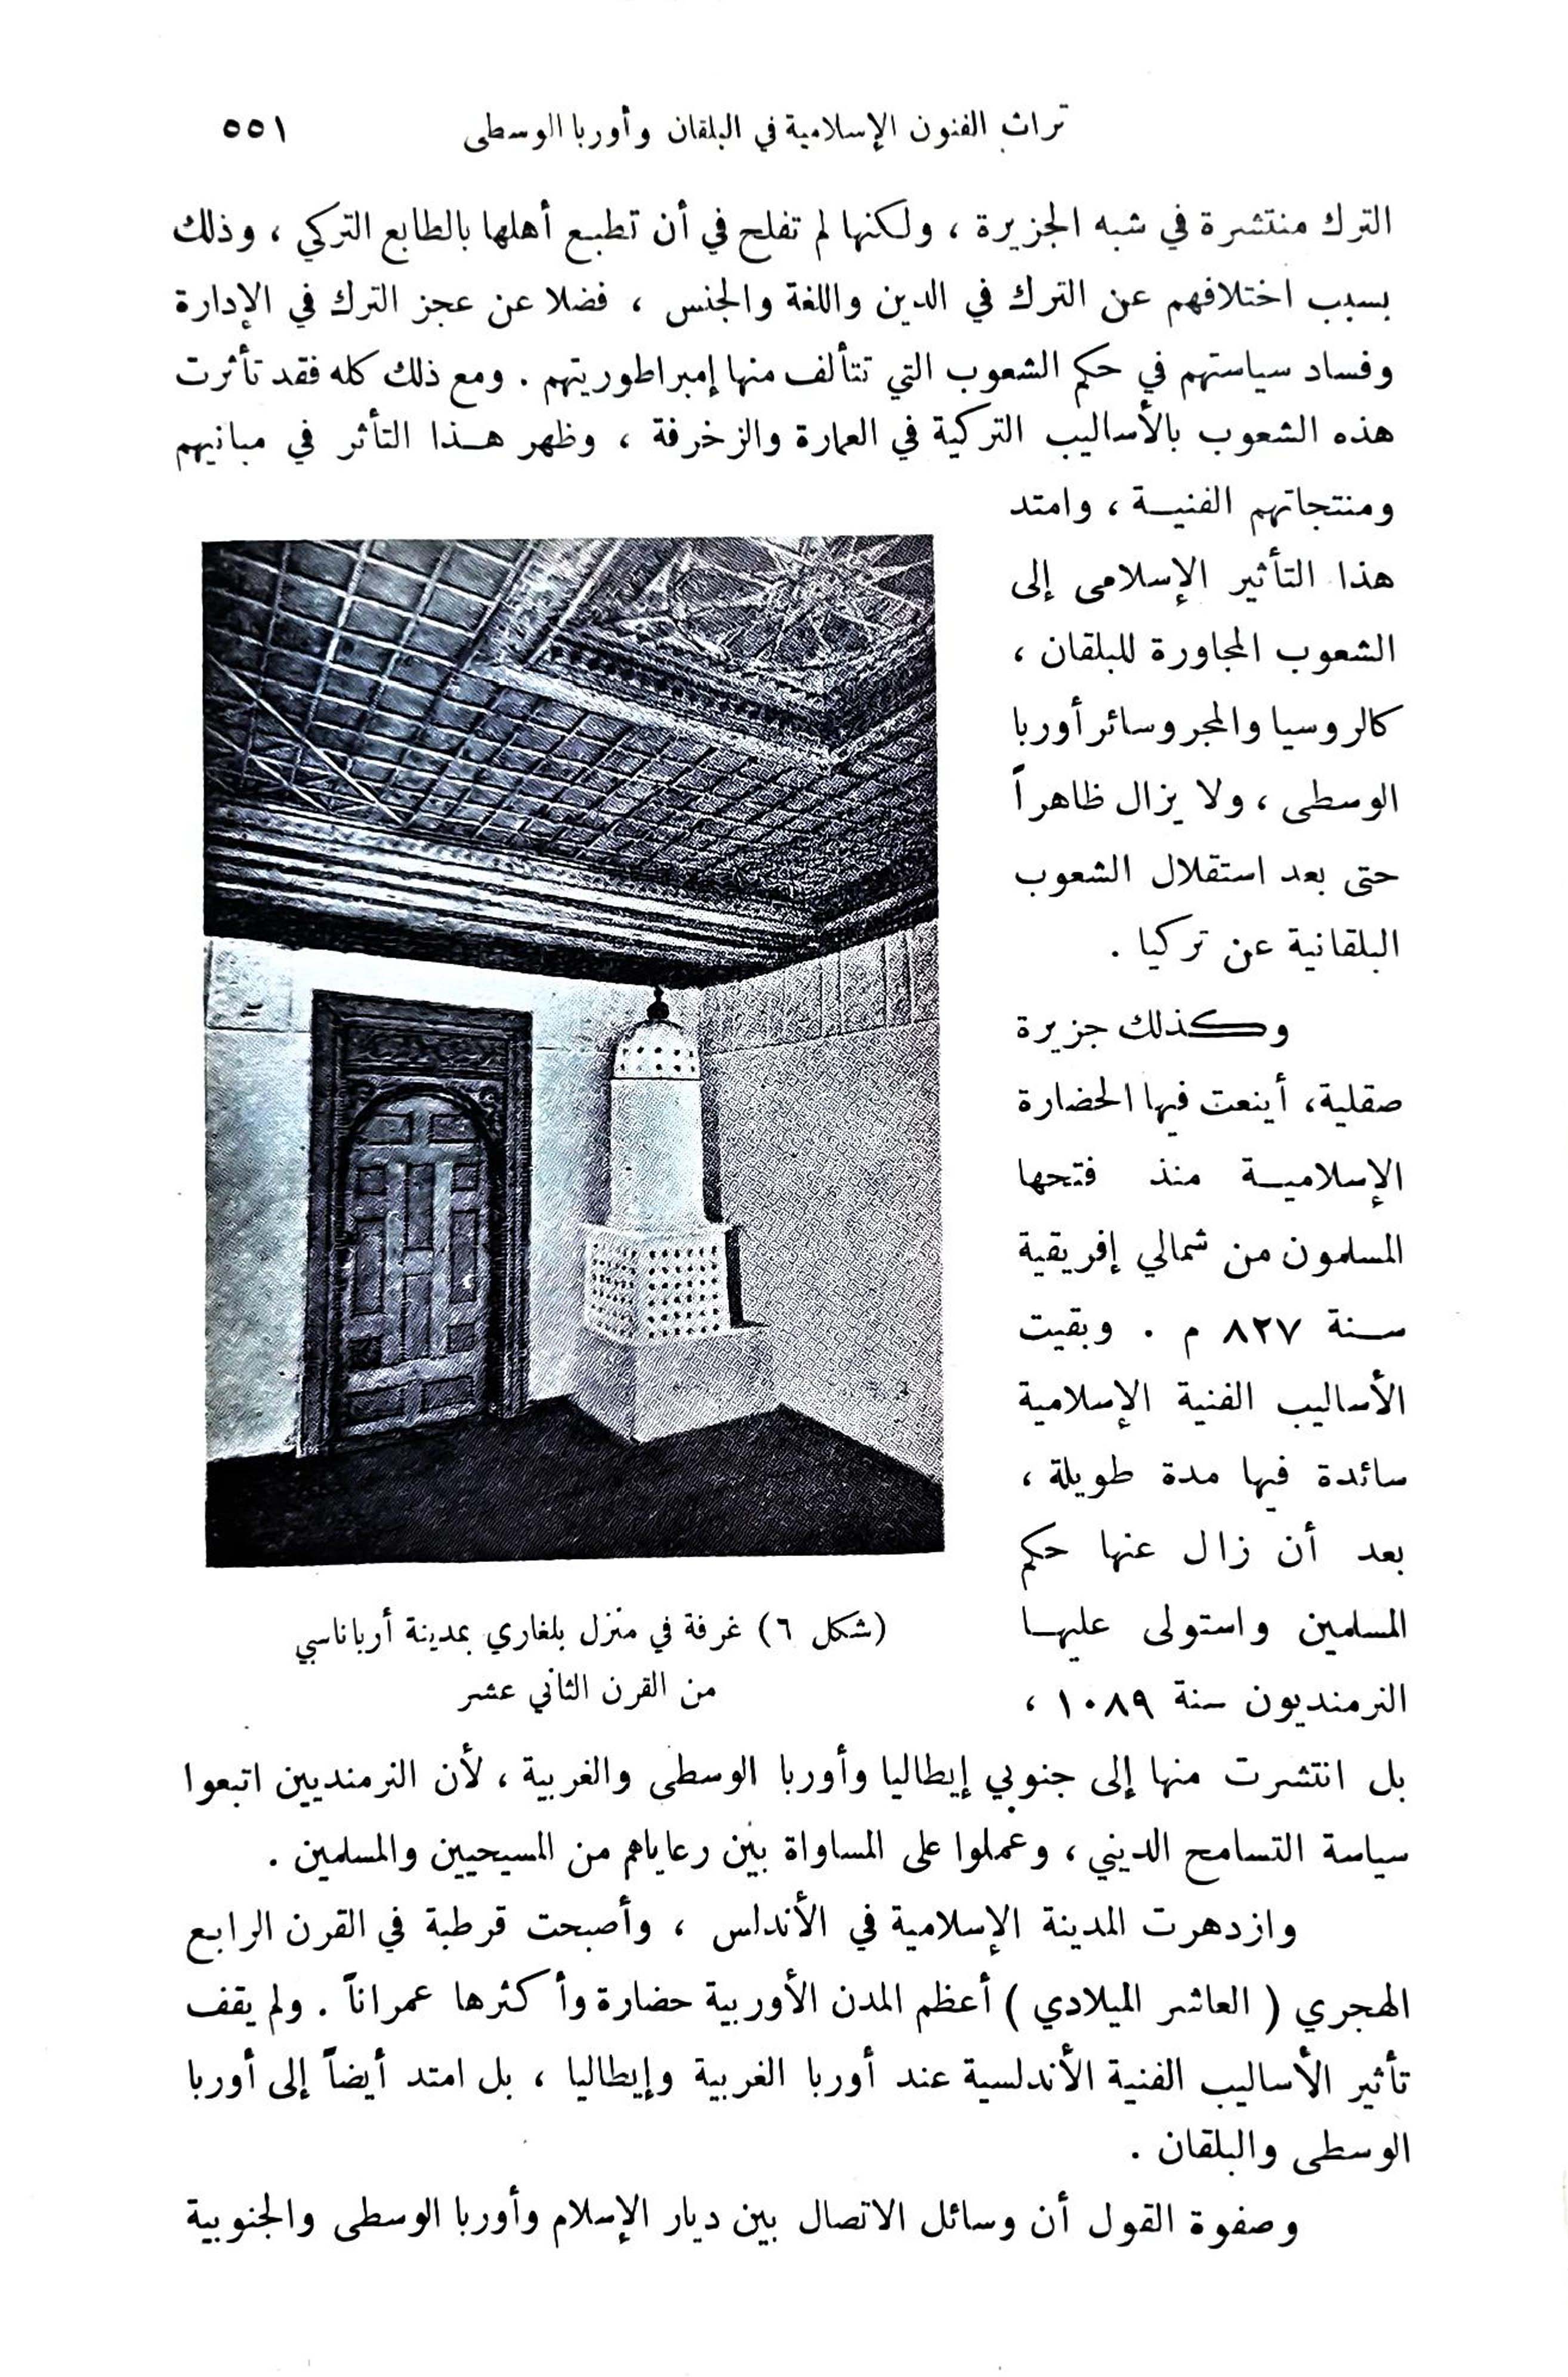 تراث الفنون الإسلامية في البلقان وأوربا الوسطى ٥٥١
الترك منتشرة في شبه الجزيرة ، ولكنها لم تفلح في أن تطبع أهلها بالطابع التركي ، وذلك
بسبب اختلافهم عن الترك في الدين واللغة والجنس ، فضلا عن عجز الترك في الإدارة
وفساد سياستهم في حكم الشعوب التي تتألف منها إمبراطوريتهم . ومع ذلك كله فقد تأثرت
هذه الشعوب بالأساليب التركية في العمارة والزخرفة ، وظهر هذا التأثر في مبانيهم
ومنتجاتهم الفنية ، وامتد
هذا التأثير الإسلامى إلى
الشعوب المجاورة للبلقان ،
كالروسيا والمجر وسائر أوربا
الوسطى ، ولا يزال ظاهراً
حتى بعد استقلال الشعوب
البلقانية عن تركيا .
وكذلك جزيرة
صقلية، أينعت فيها الحضارة
الإسلامية منذ فتحها
المسلمون من شمالي إفريقية
سنة ٨٢٧ م . وبقيت
الأساليب الفنية الإسلامية
سائدة فيها مدة طويلة ،
بعد أن زال عنها حكم
المسلمين واستولى عليها
النرمنديون سنة ١٠٨٩ ،
(شكل ٦) غرفة في منزل بلغاري بمدينة أرباناسي
من القرن الثاني عشر
بل انتشرت منها إلى جنوبي إيطاليا وأوربا الوسطى والغربية ، لأن النرمنديين اتبعوا
سياسة التسامح الديني ، وعملوا على المساواة بين رعاياهم من المسيحيين والمسلمين .
وازدهرت المدينة الإسلامية في الأندلس ، وأصبحت قرطبة في القرن الرابع
الهجري ( العاشر الميلادي ) أعظم المدن الأوربية حضارة وأكثرها عمراناً . ولم يقف
تأثير الأساليب الفنية الأندلسية عند أوربا الغربية وإيطاليا ، بل امتد أيضاً إلى أوربا
الوسطى والبلقان .
وصفوة القول أن وسائل الاتصال بين ديار الإسلام وأوربا الوسطى والجنوبية